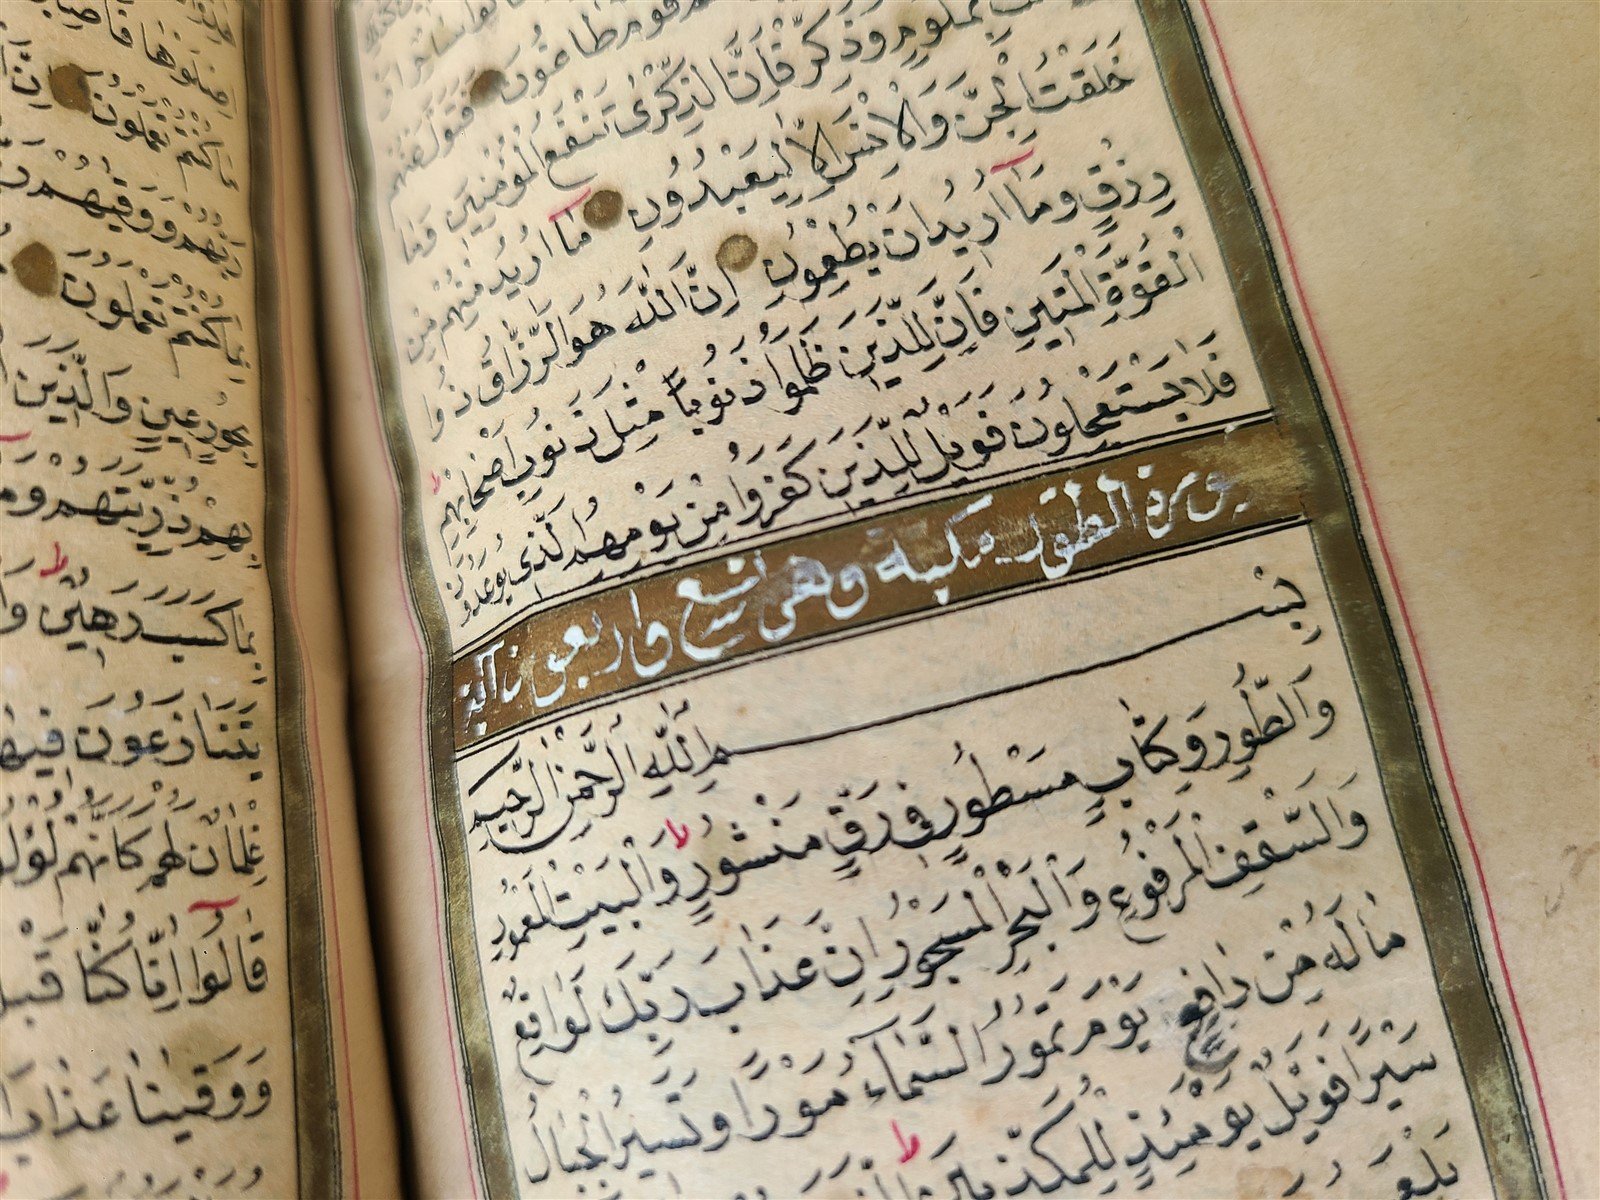 قَوْمٌ طَاغُونَ فَتَوَلَّ عَنْهُمْ
بِمَلُومٍ وَذَكِّرْ فَاِنَّ الذِّكْرٰى تَنْفَعُ الْمُؤْمِنِينَ وَمَا
خَلَقْتُ الْجِنَّ وَالْاِنْسَ اِلَّا لِيَعْبُدُونِ مَا اُرِيدُ مِنْهُمْ مِنْ
رِزْقٍ وَمَا اُرِيدُ اَنْ يُطْعِمُونِ اِنَّ اللّٰهَ هُوَ الرَّزَّاقُ ذُوا
الْقُوَّةِ الْمَتِينِ فَاِنَّ لِلَّذِينَ ظَلَمُوا ذَنُوبًا مِثْلَ ذَنُوبِ اَصْحَابِهِمْ
فَلَا يَسْتَعْجِلُونَ فَوَيْلٌ لِلَّذِينَ كَفَرُوا مِنْ يَوْمِهِمُ الَّذِي يُوعَدُونَ
سورة الطور مكية وهى تسع واربعون اية
بِسْمِ اللّٰهِ الرَّحْمٰنِ الرَّحِيمِ
وَالطُّورِ وَكِتَابٍ مَسْطُورٍ فِي رَقٍّ مَنْشُورٍ وَالْبَيْتِ الْمَعْمُورِ
وَالسَّقْفِ الْمَرْفُوعِ وَالْبَحْرِ الْمَسْجُورِ اِنَّ عَذَابَ رَبِّكَ لَوَاقِعٌ
مَا لَهُ مِنْ دَافِعٍ يَوْمَ تَمُورُ السَّمَاءُ مَوْرًا وَتَسِيرُ الْجِبَالُ
سَيْرًا فَوَيْلٌ يَوْمَئِذٍ لِلْمُكَذِّبِينَ
كُنْتُمْ تَعْمَلُونَ
رَبُّهُمْ وَوَقٰيهُمْ
كُنْتُمْ تَعْمَلُونَ
بِحُورٍ عِينٍ وَالَّذِينَ
بِهِمْ ذُرِّيَّتَهُمْ وَمَا
بِمَا كَسَبَ رَهِينٌ
يَتَنَازَعُونَ فِيهَا
غِلْمَانٌ لَهُمْ كَاَنَّهُمْ
قَالُوا اِنَّا كُنَّا قَبْلُ
وَوَقٰينَا عَذَابَ